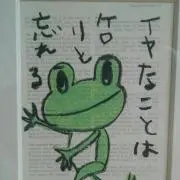 イヤなことは
ケロリと
忘れる